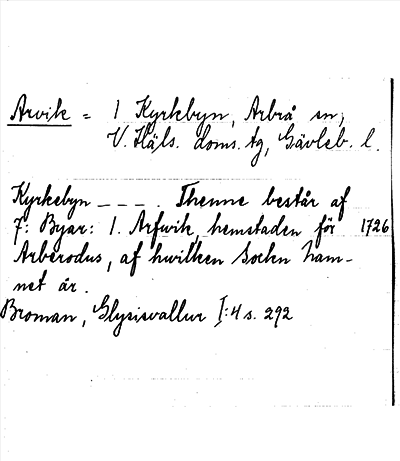 Arvik = 1 Kyrkebyn, Arbrå sn,
V. Häls. doms. tg, Gävleb. l.
Kyrkebyn _ _ _ . Thenne består af
7: Byar: 1. Arfwik, hemstaden för 1726
Arberodus, af hwilken Sockn nam-
net är.
Broman, Glysisvallur I:4 s. 292